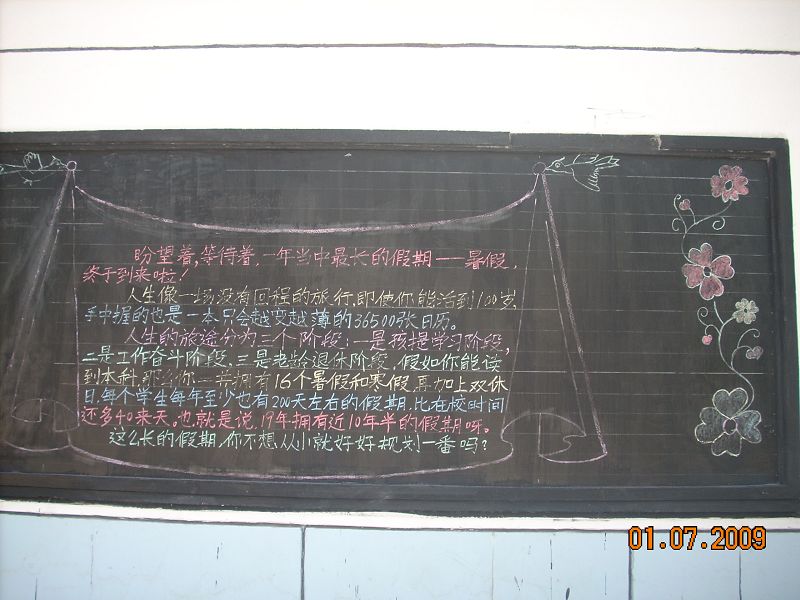 盼望着,等待着,一年当中最长的假期——暑假,
终于到来啦!
人生像一场没有回程的旅行,即使你能活到100岁,
手中握的也是一本只会越变越薄的36500张日历。
人生的旅途分为三个阶段:一是孩提学习阶段,
二是工作奋斗阶段,三是老龄退休阶段,假如你能读
到本科,那么你一共拥有16个暑假和寒假,再加上双休
日,每个学生每年至少也有200天左右的假期,比在校时间
还多40来天。也就是说,19年拥有近10年半的假期呀。
这么长的假期,你不想从小就好好规划一番吗?
01.07.2009